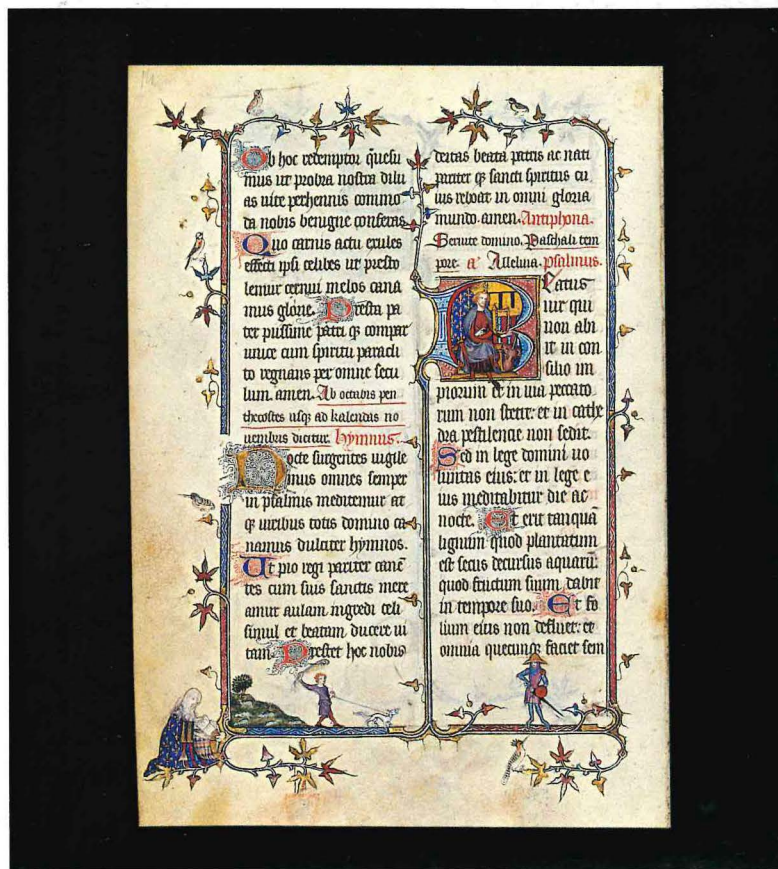 Ob hoc redemptor quesu
mus ut probra nostra dilu
as uite perhennis commo
da nobis benigne conferas
Quo carnis actu exules
effecti ipsi celibes ut presto
lemur cernui melos cana
mus glorie. Presta pa
ter piissime patri q; compar
unice cum spiritu paracli
to regnans per omne secu
lum. amen. Ab octabis pen
thecostes usq; ad kalendas no
uembris dicitur. hymnus.
Nocte surgentes uigile
mus omnes semper
in psalmis meditemur at
q; uiribus totis domino ca
namus dulciter hymnos.
Ut pio regi pariter canē
tes cum suis sanctis mere
amur aulam ingredi celi
simul et beatam ducere ui
tam. Prestet hoc nobis
deitas beata patris ac nati
pariter q; sancti spiritus cu
ius reboat in omni gloria
mundo. amen. Antiphona.
Seruite domino. Paschali tem
pore. a Alleluia. psalmus.
Beatus
uir qui
non abi
it in con
silio im
piorum et in uia peccato
rum non stetit: et in cathe
dra pestilencie non sedit.
Sed in lege domini uo
luntas eius: et in lege e
ius meditabitur die ac
nocte. Et erit tanquā
lignum quod plantatum
est secus decursus aquarū:
quod fructum suum dabit
in tempore suo. Et fo
lium eius non defluet: et
omnia quecunq; faciet sem